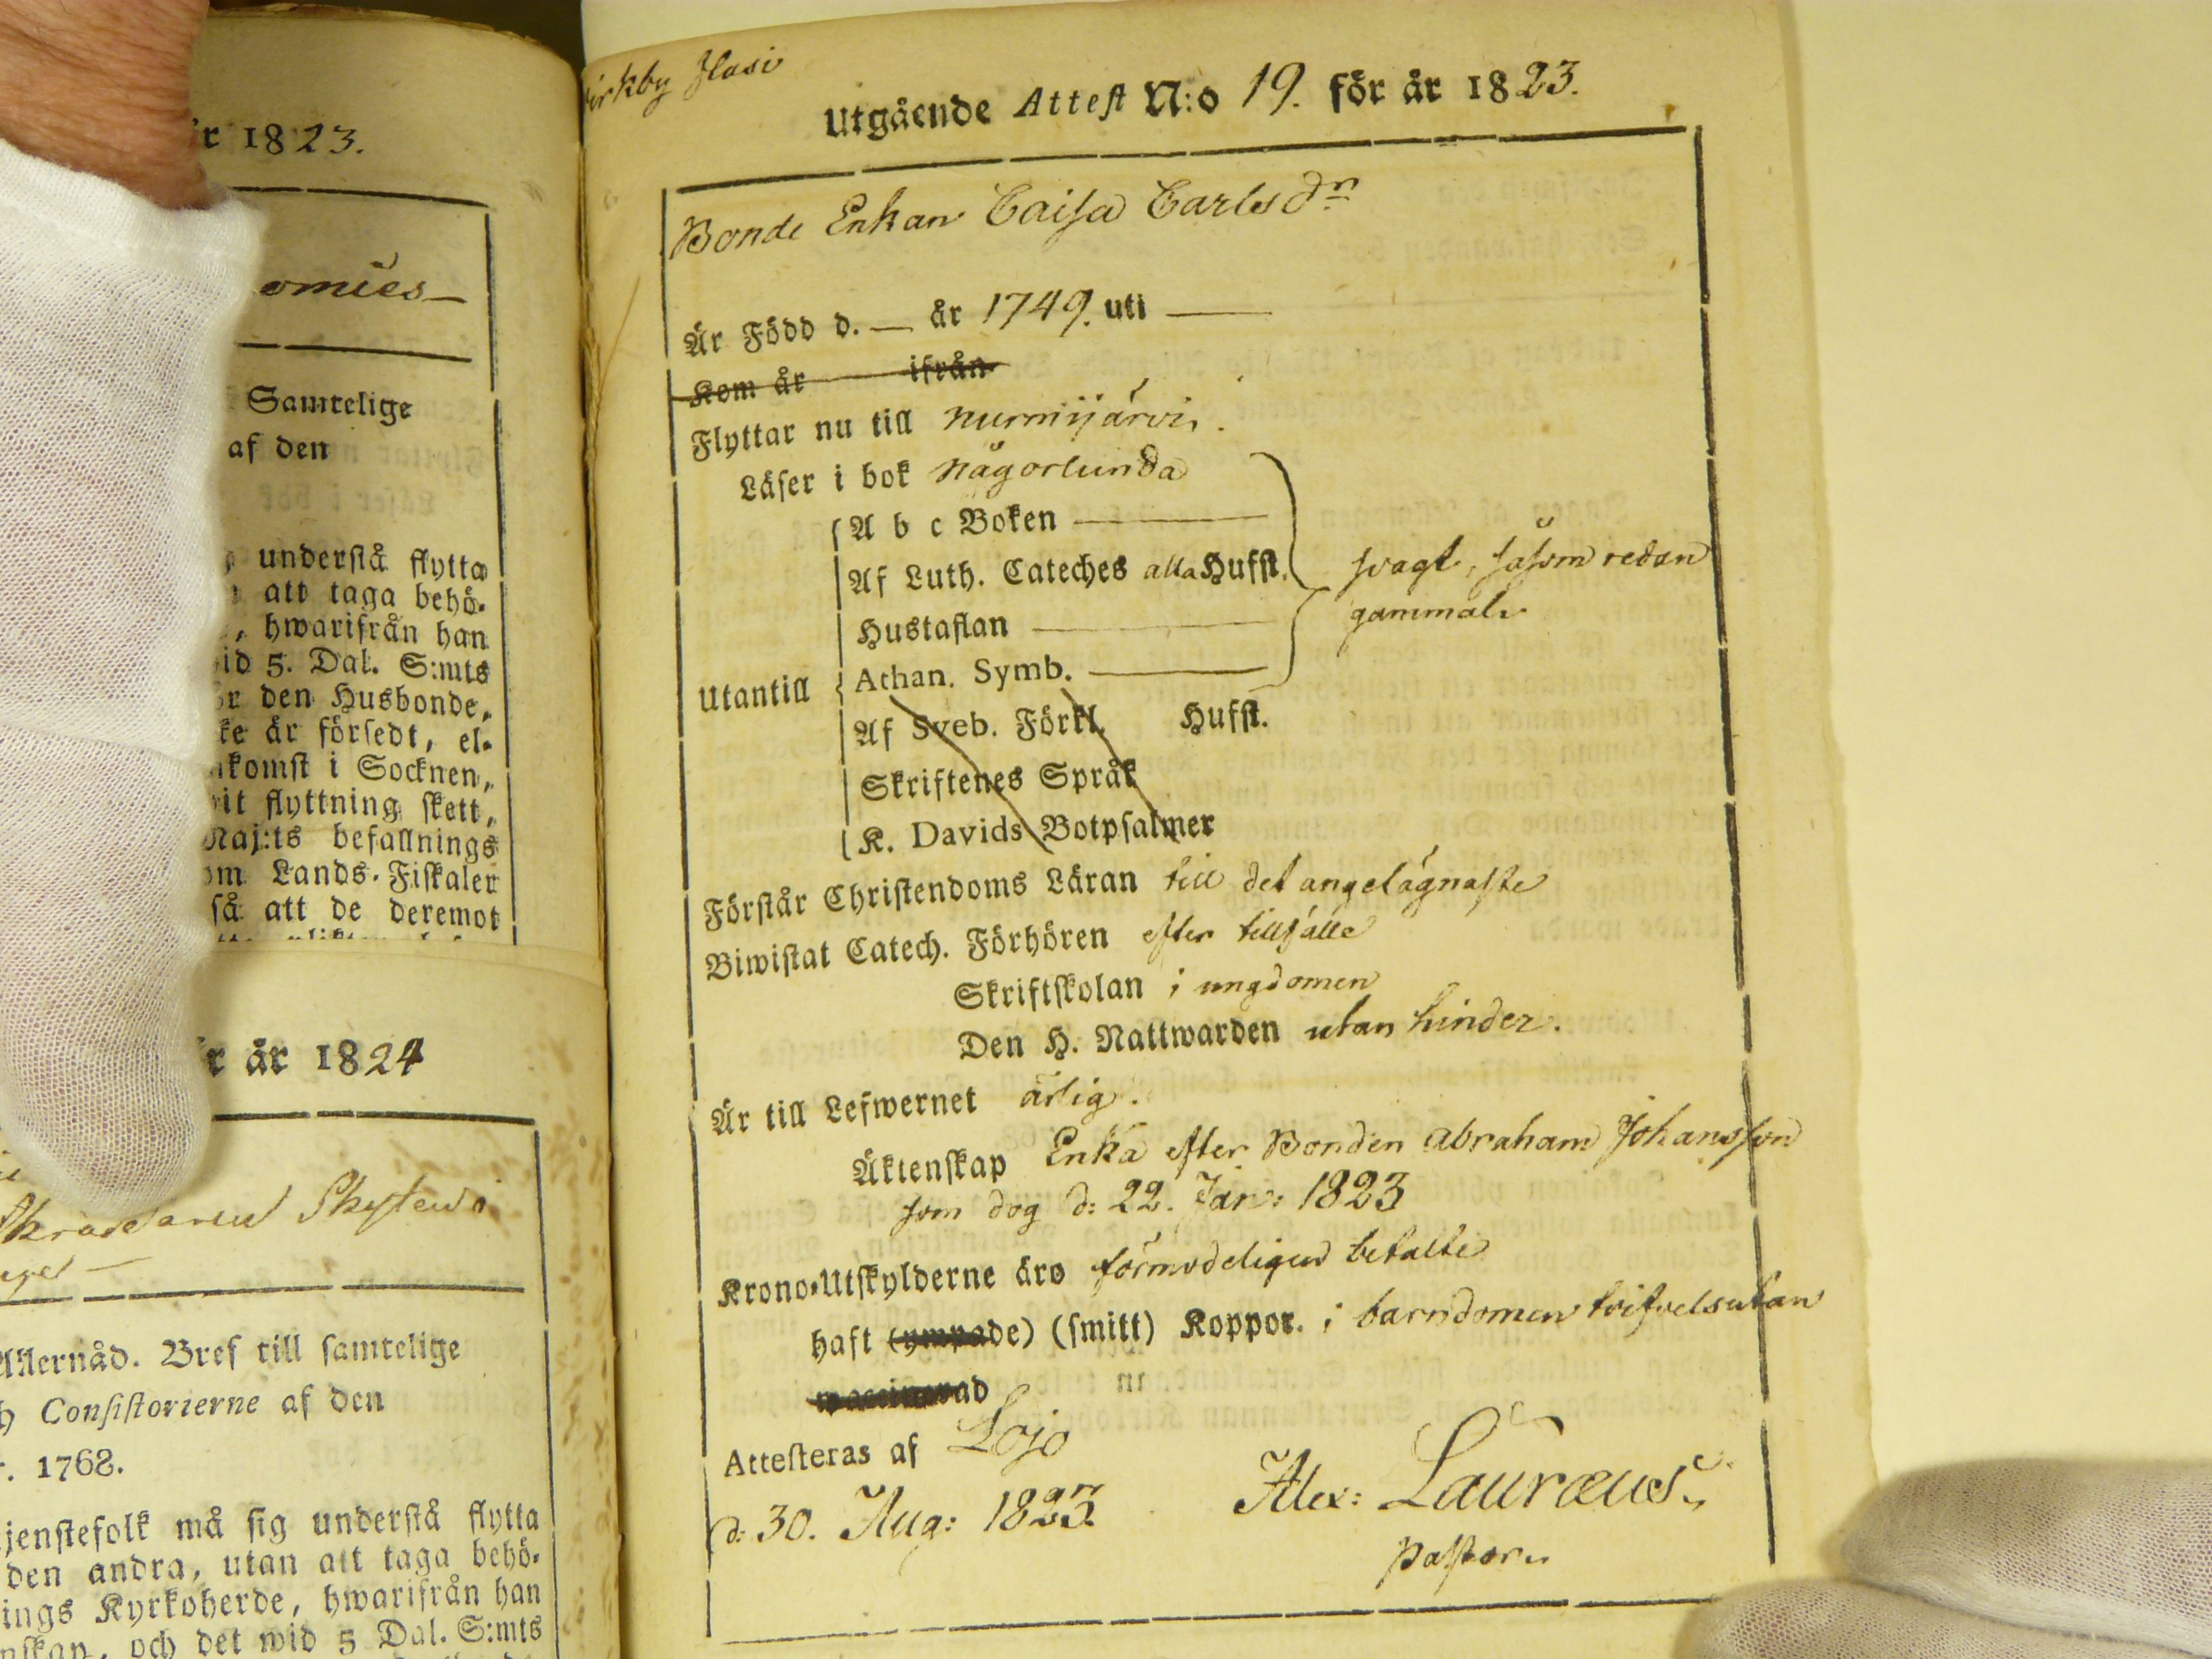 r 1823.
omies
Samtelige
af den
understå flytta
att taga behö-
, hwarifrån han
id 5. Dal. S:mts
den Husbonde,
ke är försedt, el-
komst i Socknen,
it flyttning skett,
Maj:ts befallnings
om Lands-Fiskaler
så att de deremot
r år 1824
Allernåd. Bref till samtelige
Consistorierne af den
1768.
jenstefolk må sig understå flytta
den andra, utan att taga behö-
ings Kyrkoherde, hwarifrån han
nskap, och det wid 5 Dal. S:mts
irkby Jlasi
Utgående Attest N:o 19. för år 1823.
Bonde Enkan Caisa Carlsdr
Är Född d. — år 1749. uti —
Kom år ifrån
Flyttar nu till Nurmijärvi.
Läser i bok någorlunda
A b c Boken —
Af Luth. Cateches alla Hufst.
svagt, såsom redan
gammal.
Hustaflan —
Utantill
Athan. Symb. —
Af Sveb. Förkl. Hufst.
Skriftenes Språk
K. Davids Botpsalmer
Förstår Christendoms Läran till det angelägnaste
Biwistat Catech. Förhören efter tillfälle
Skriftskolan i ungdomen
Den H. Nattwarden utan hinder.
Är till Lefwernet ärlig.
Äktenskap Enka efter Bonden Abraham Johansson
som dog d: 22. Jan: 1823
Krono-Utskylderne äro förmodeligen betalte
haft (ympade) (smitt) Koppor. i barndomen tvifvelsutan
waccinerad
Attesteras af Lojo
d: 30. Aug: 1823. Alex: Lauræus.
Pastor.